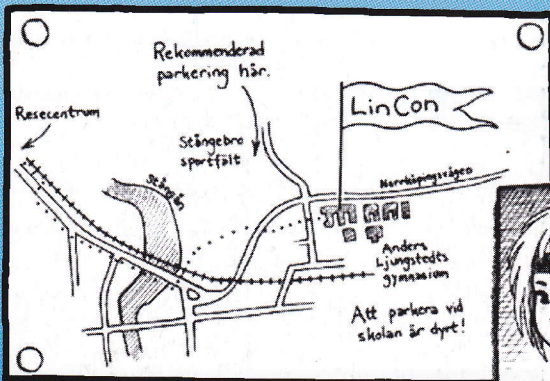 Rekommenderad
parkering här.
LinCon
Resecentrum
Stångebro
sportfält
Stångån
Norrköpingsvägen
Anders
Ljungstedts
gymnasium
Att parkera vid
skolan är dyrt!